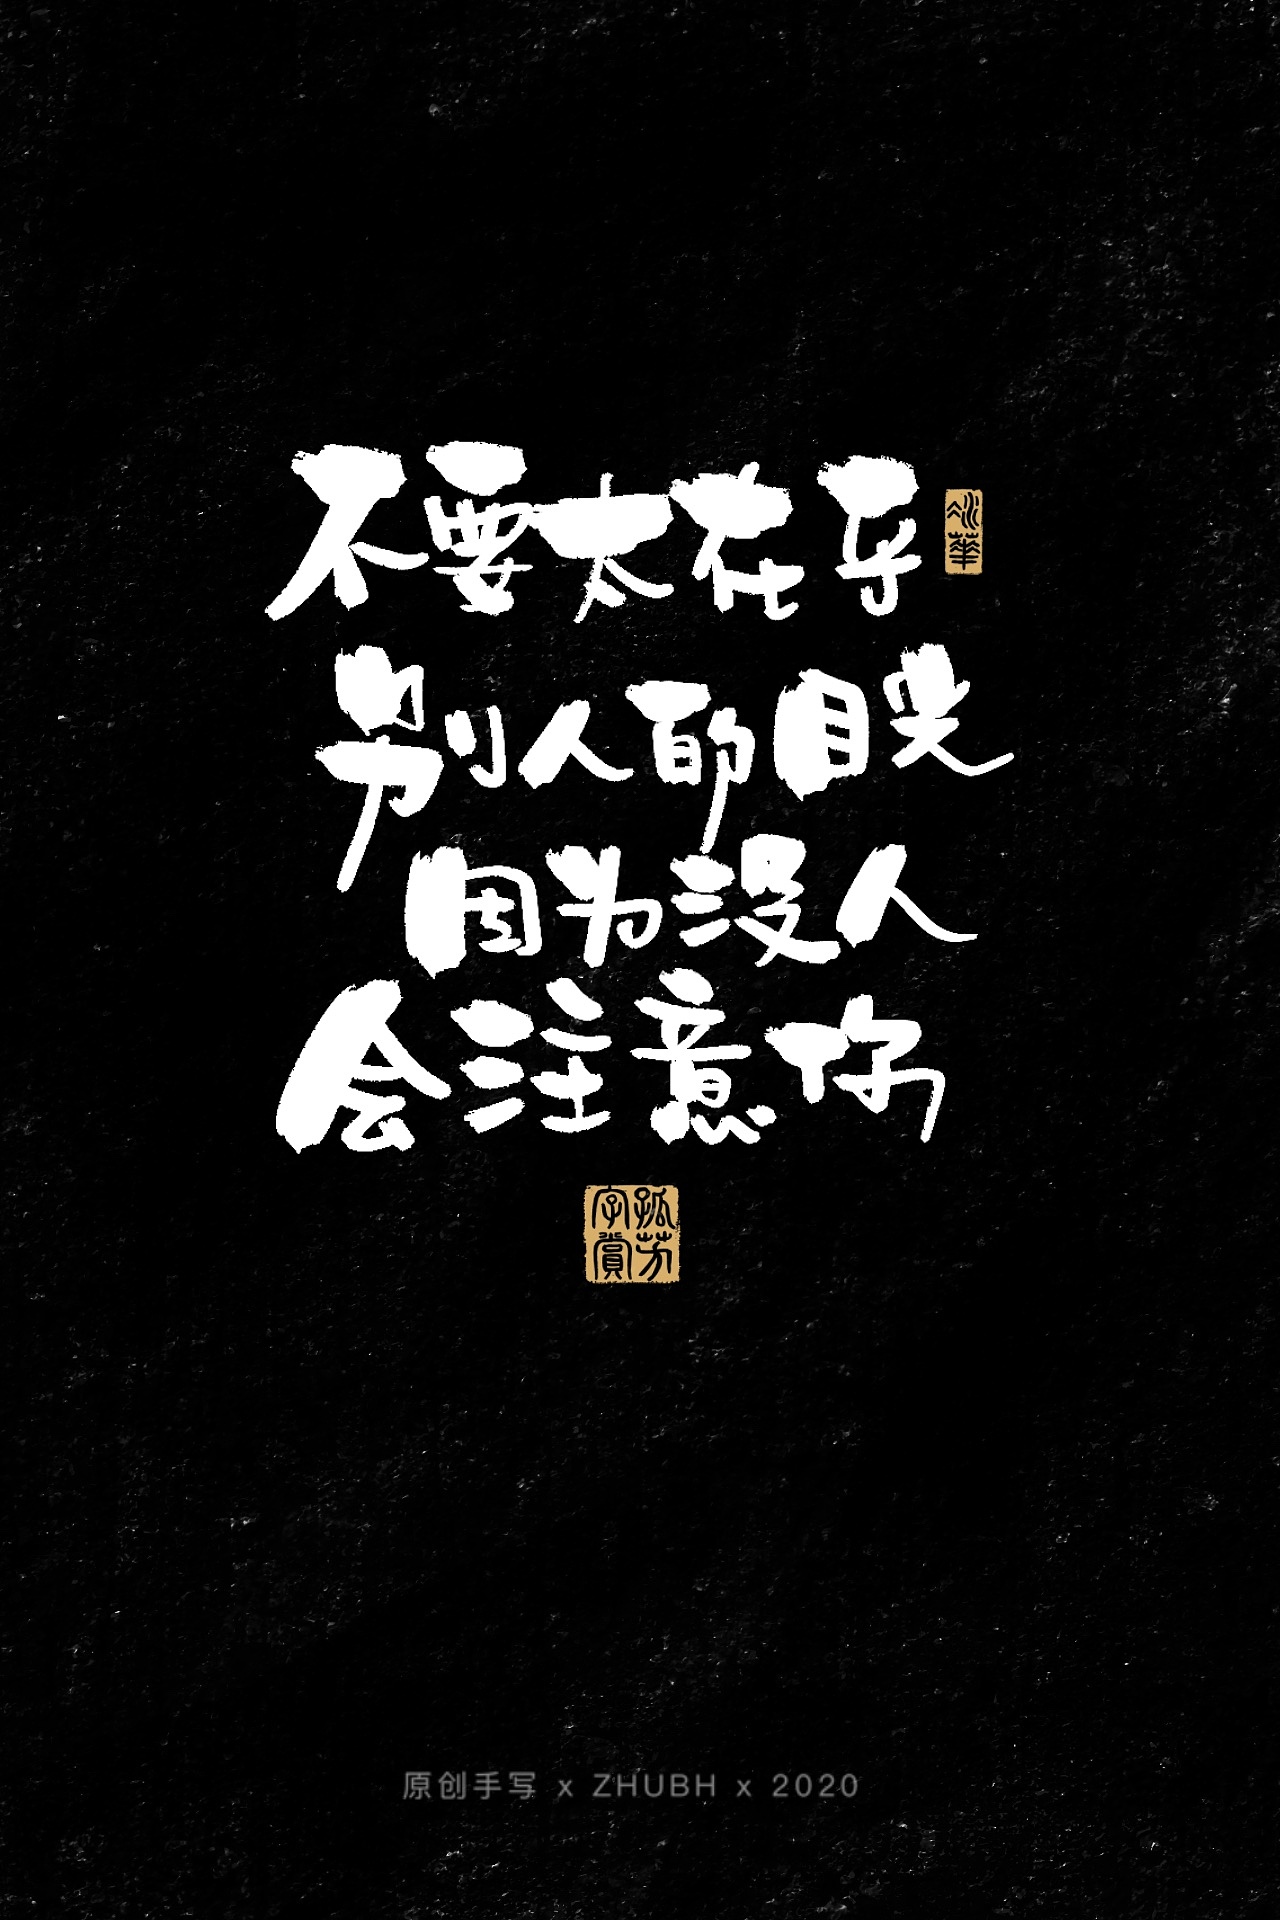 不要太在乎
冰華
别人的目光
因为没人
会注意你
孤芳
字賞
原创手写 x ZHUBH x 2020